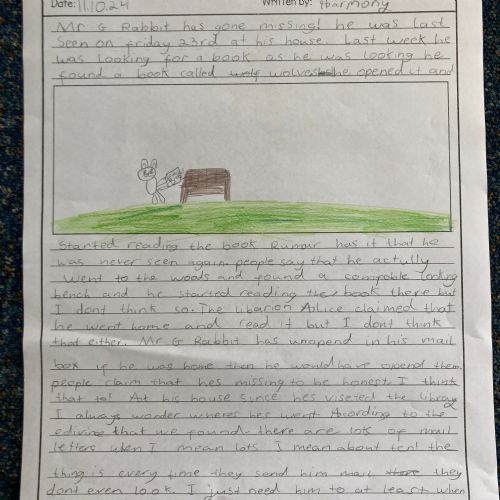 Date: 11.10.24 Written by: Harmony
Mr G Rabbit has gone missing! he was last
seen on friday 23rd at his house. Last week he
was looking for a book as he was looking he
found a book called wolves he opened it and
Started reading the book Rumur has it that he
was never seen again. people say that he actully
went to the woods and found a comfoble looking
bench and he started reading the book there but
I dont think so. The libarion Alice claimed that
he went home and read it but I dont think
that either. Mr G Rabbit has unopend in his mail
box if he was home then he would have opend them.
people claim that hes missing to be honest I think
that to! At his house since hes viseted the library
I always wonder wheres he's went Acording to the
edivine that we found. there are lots of mail
letters when I mean lots I mean about ten! the
thing is every time they send him mail they
dont even look. I just need him to at least when